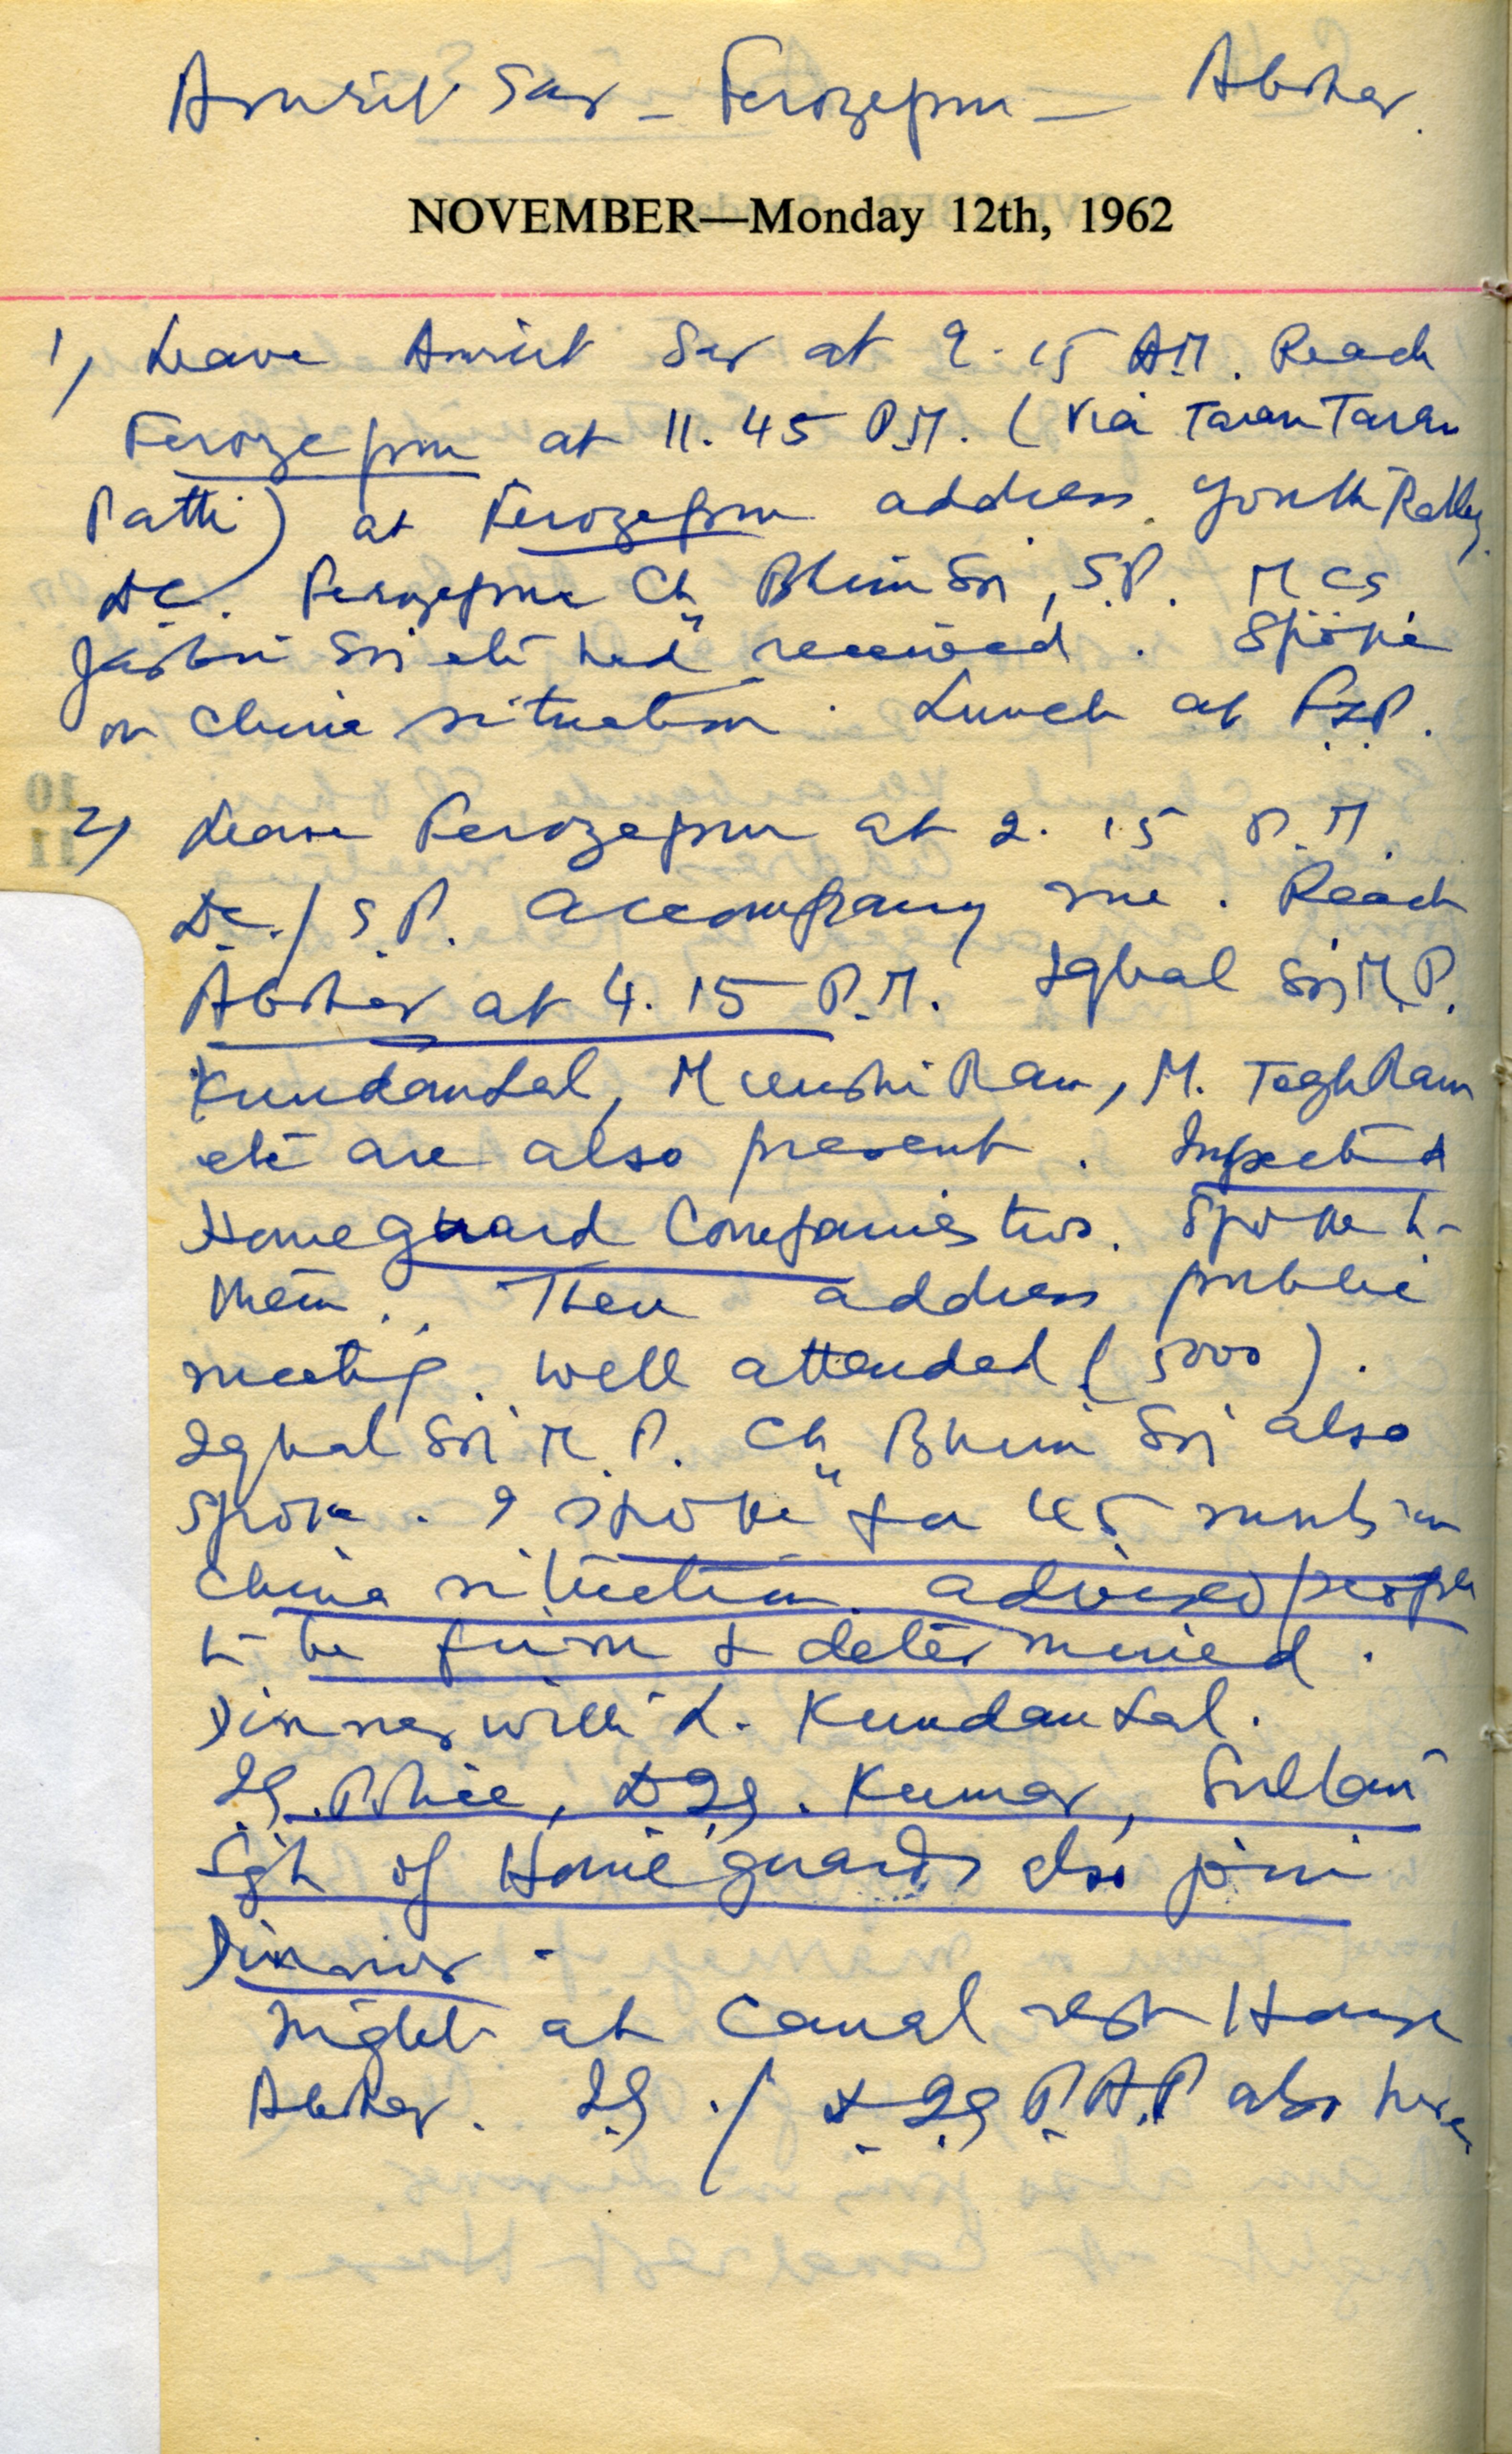 Amrit Sar - Ferozepur - Abohar.
NOVEMBER—Monday 12th, 1962
1) Leave Amrit Sar at 9.15 A.M. Reach
Ferozepur at 11.45 P.M. (Via Taran Taran
Patti) at Ferozepur address youth Rally
DC. Ferozepur Ch Bhim Sri, S.P.
Sri etc had received. Spoke
on China situation. Lunch at FZP.
2) Leave Ferozepur at 2.15 P.M.
DC./S.P. accompany me. Reach
Abohar at 4.15 P.M. Iqbal Sri M.P.
Kundan Lal, Munshi Ram, M. Tegh Ram
etc are also present. Inspected
Home guard Companies two. Spoke to
them. Then address public
meeting. Well attended (5000).
Iqbal Sri M.P. Ch Bhim Sri also
spoke. I spoke for 45 on
China situation. advised people
to be firm & determined.
Dinner with L. Kundan Lal.
IG. Police, DIG. Kumar, Sultan
Sgh of Home guards also join
Dinner.
Night at Canal rest House
Abohar. IG./DIG P.A.P also here